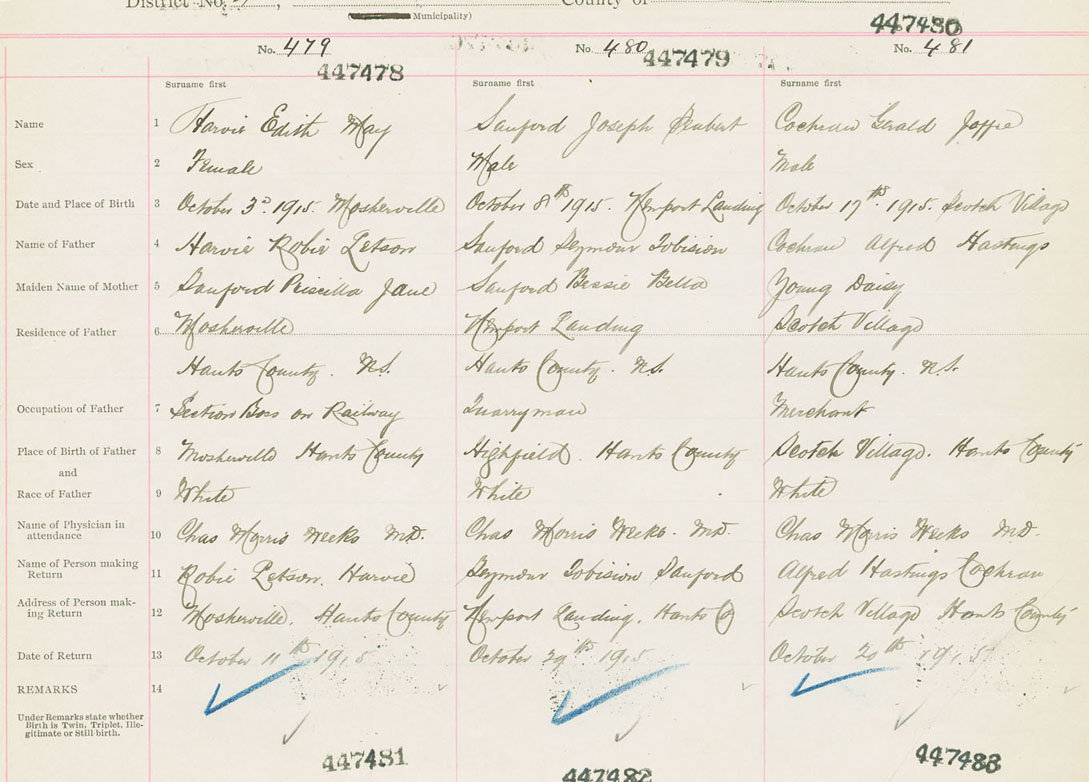 District No. 7, County of
Municipality)
447480
No. 479 No. 480 No. 481
447478 447479
Surname first Surname first Surname first
Name 1 Harvie Edith May Sanford Joseph Cochran Gerald Joffre
Sex 2 Female Male Male
Date and Place of Birth 3 October 3d. 1915. Mosherville October 8th 1915. Newport Landing October 17th. 1915. Scotch Village
Name of Father 4 Harvie Robie Letson Sanford Seymour Tobision Cochran Alfred Hastings
Maiden Name of Mother 5 Sanford Priscilla Jane Sanford Bessie Bella Young Daisy
Residence of Father 6 Mosherville Newport Landing Scotch Village
Hants County. N.S. Hants County. N.S. Hants County. N.S.
Occupation of Father 7 Section Boss on Railway Quarryman Merchant
Place of Birth of Father 8 Mosherville Hants County Highfield. Hants County Scotch Village. Hants County
and
Race of Father 9 White White White
Name of Physician in
attendance 10 Chas Morris Weeks M.D. Chas Morris Weeks. M.D. Chas Morris Weeks M.D.
Name of Person making
Return 11 Robie Letson. Harvie Seymour Tobision Sanford Alfred Hastings Cochran
Address of Person mak-
ing Return 12 Mosherville. Hants County Newport Landing. Hants Co Scotch Village Hants County
Date of Return 13 October 11th 1915 October 29th 1915 October 20th 1915
REMARKS 14
Under Remarks state whether
Birth is Twin, Triplet, Ille-
gitimate or Still-birth.
447481 447482 447483